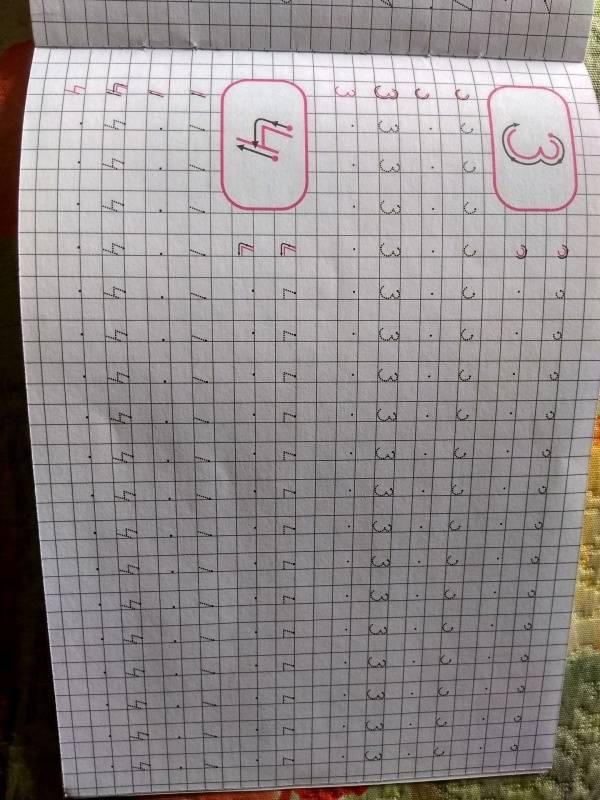 3
3 3 3 3 3 3 3 3 3 3 3 3 3 3 3 3 3 3 3
3
4
4 4 4 4 4 4 4 4 4 4 4 4 4 4 4 4 4 4 4
4